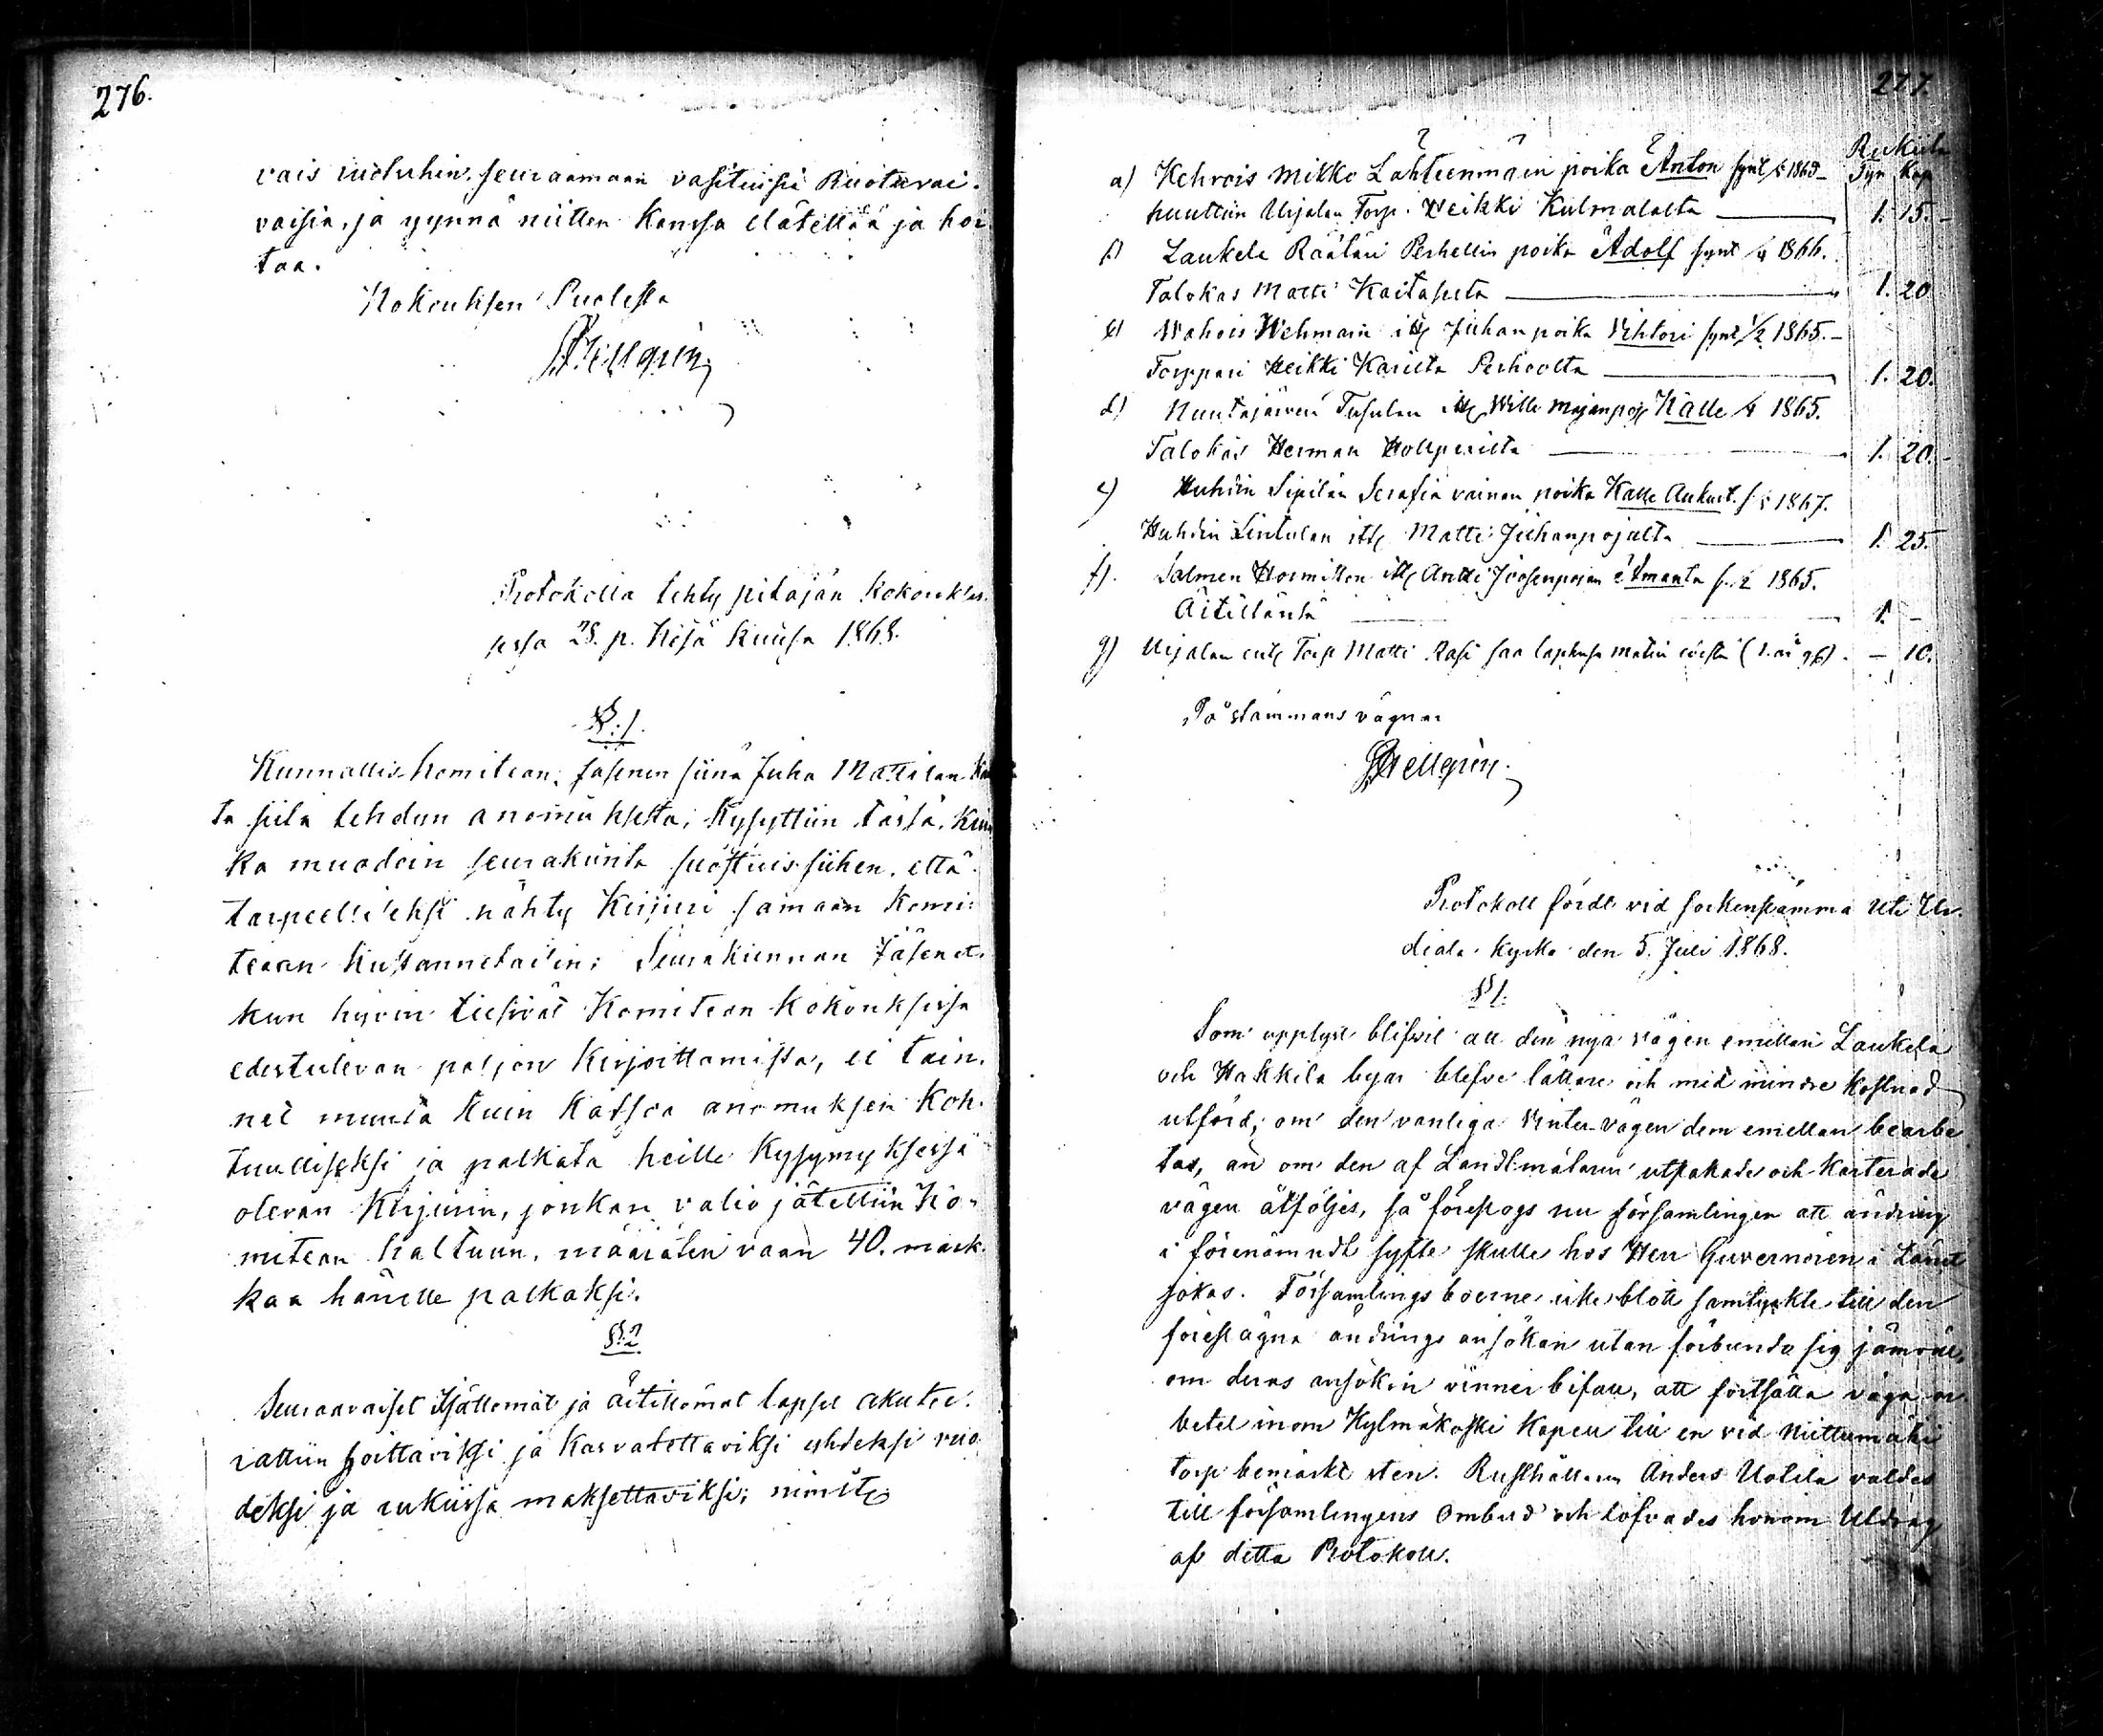 276.
vais ruotuhin seuraamaan vasituisia Ruotuvai-
vaisia, ja yynnä niitten kanssa elätellää ja hoi
taa.
Kokouksen Puolesta
Protokolla tehty pitäjän kokouksessa
28. p. Kesä kuusa 1868.
§. 1.
Kunnallis-komitean, jäsenen siinä Juha Mattilan
ta siitä tehdyn anomuksesta; kysyttiin tässä, kuin
ka muodoin seurakunta suostuis siihen, että
tarpeelliseksi nähty Kirjuri samaan Komi-
teaan kustannetaisiin; Seurakunnan Jäsenet,
kun hyvin tiesivät Komitean kokouksissa
edestulevan paljon kirjoittamista, ei tain-
net muuta kuin katsoa anomuksen koh-
tuulliseksi ja palkata heille kysymyksessä
olevan Kirjurin, jonkan valio jätettiin Ko-
mitean haltuun, määräten vaan 40. mark-
kaa hänelle palkaksi.
§. 2
Seuraavaiset Isättömät ja äitittömät lapset akutee-
rattiin hoittaviksi ja kasvatettaviksi yhdeksi vuo
deksi ja rukiissa maksettaviksi; nimit.
277.
Rukiita
Tyn Kap
a) Kehrois Mikko Lähteenmäen poika Anton synt. 1865
huuttiin Urjalan Torp. Heikki Kulmalalta 1. 15.
b) Laukela Räätäri Perhellin poika Adolf synt 1866.
Talokas Matti Kaitaselta 1. 20
c) Wahois Wehmain itt. Juhan poika Vihtori synt. 1/2 1865.
Torppari Heikki Karilta Perhoolta 1. 20.
d) Nuutajärven Tusulan itt. Wille Majanpoj. Kalle 1865.
Talokas Herman Hollperilta 1. 20.
e) Huhdin Sipilän Serafia vainan poika Kalle August. s. 1867.
Huhdin Sintulan itt. Matti Juhanpojalta 1. 25.
f) Salmen Hormiston itt. Antti Joosenpojan Amanta s. 1865.
Äitillänsä 1. –
g) Urjalan ent. Torp Matti Rasi saa lapsensa – 10.
På stämmans vägnar
Protokoll fördt vid sockenstämma uti Ur-
diala Kyrka den 5. Juli 1868.
§ 1.
Som upplyst blifvit att den nya vägen emellan Laukela
och Hakkila byar blefve lättare och med mindre kostnad
utförd, om den vanliga Vinter-vägen dem emellan bearbe
tas, än om den af Landtmätaren utstakade och karterade
vägen åtföljes, så föreslogs nu församlingen att ändring
i förenämndt syfte skulle hos Herr Guvernören i Länet
sökas. Församlings boerne icke blott samtyckte till den
föreslagna ändrings ansökan utan förbundo sig jämväl,
om deras ansökan vinner bifall, att fortsätta vägar-
betet inom Kylmäkoski Kapell till en vid Niittumäki
torp bemärkt sten. Rusthållaren Anders Uotila valdes
till församlingens Ombud och lofvades honom Utdrag
af detta Protokoll.